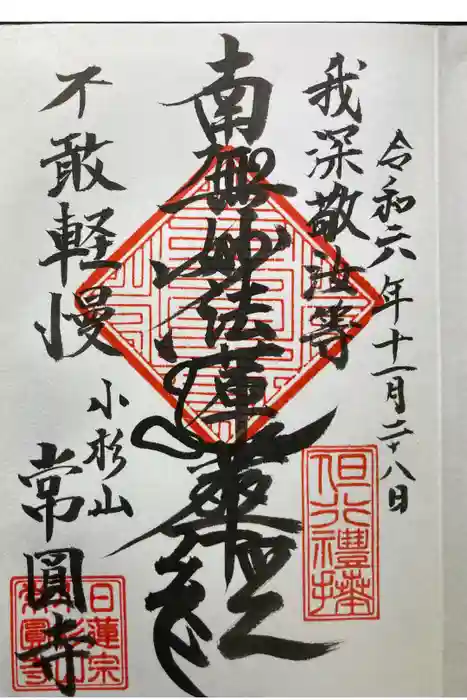 令和六年十一月二十八日
我深敬汝等
但行禮拝
南無妙法蓮華経
不敢軽慢
小杉山
常圓寺
日蓮宗
小杉山
常圓寺